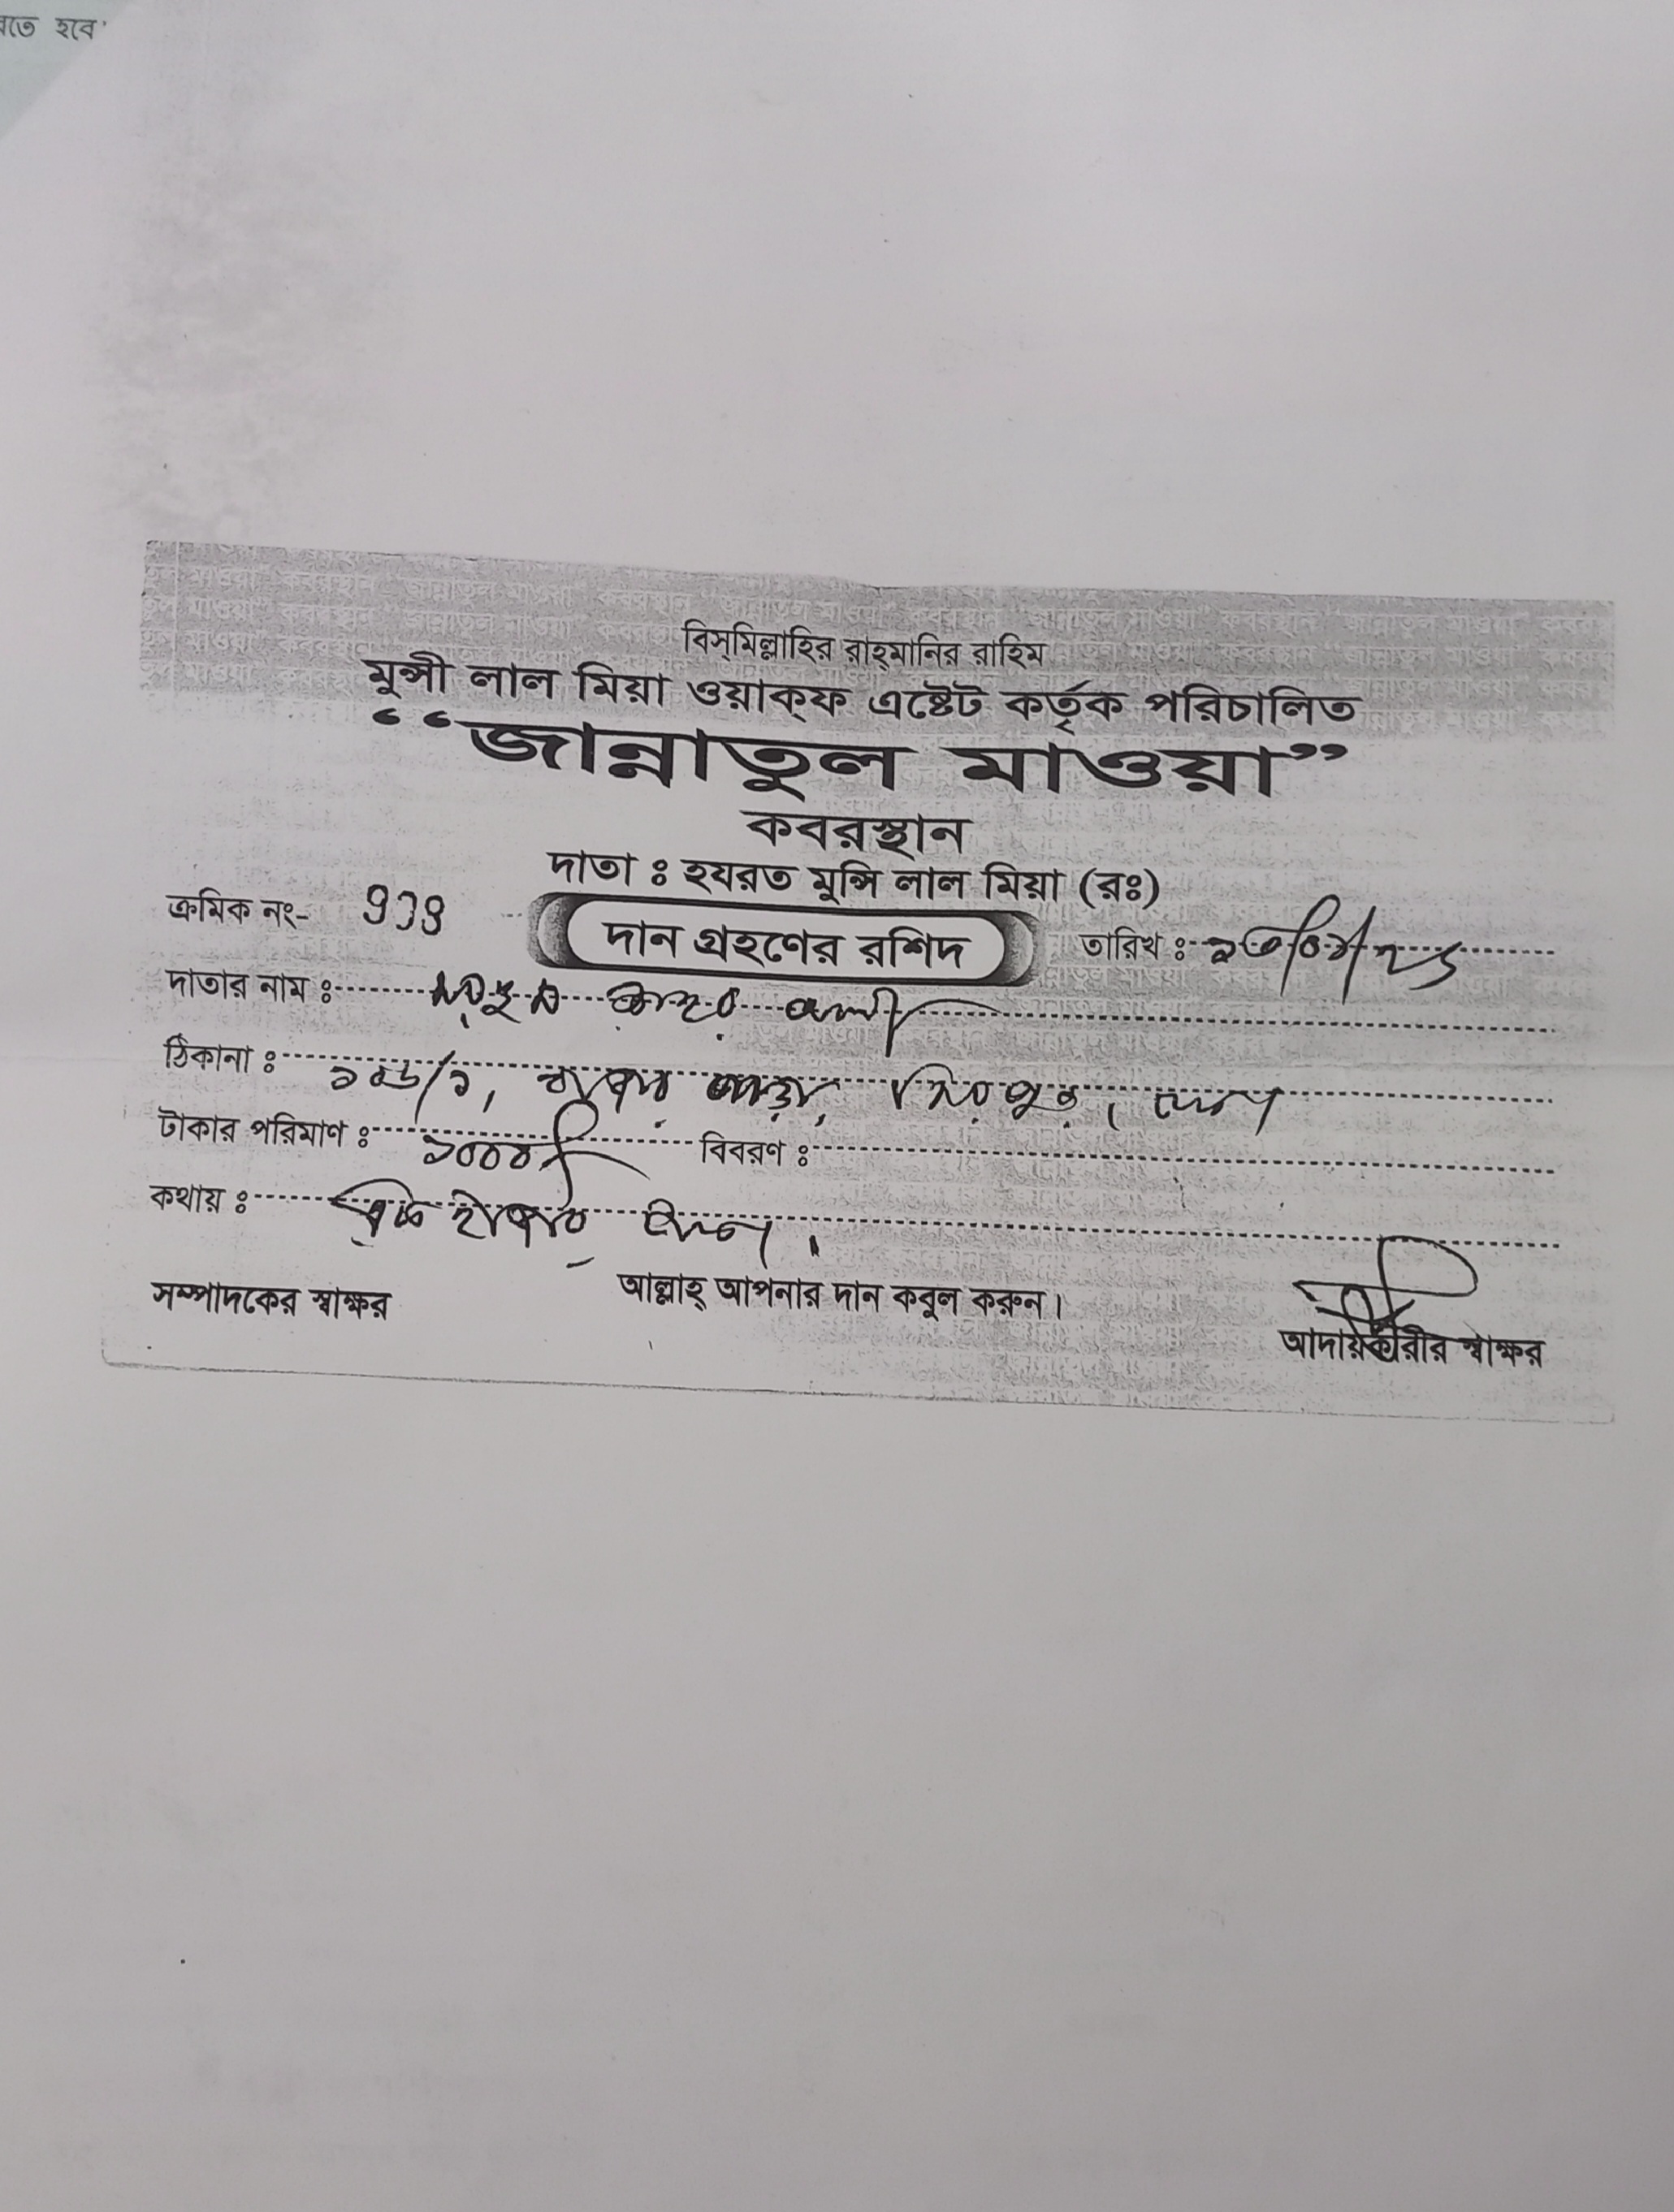 রতে হবে'
বিস্‌মিল্লাহির রাহ্‌মানির রাহিম
মুন্সী লাল মিয়া ওয়াক্‌ফ এষ্টেট কর্তৃক পরিচালিত
“জান্নাতুল মাওয়া”
কবরস্থান
দাতা ঃ হযরত মুন্সি লাল মিয়া (রঃ)
ক্রমিক নং- 934 দান গ্রহণের রশিদ তারিখ ঃ
দাতার নাম ঃ
ঠিকানা ঃ মিরপুর, ঢাকা
টাকার পরিমাণ ঃ ১০০০/ বিবরণ ঃ
কথায় ঃ এক হাজার টাকা।
সম্পাদকের স্বাক্ষর আল্লাহ্ আপনার দান কবুল করুন। আদায়কারীর স্বাক্ষর